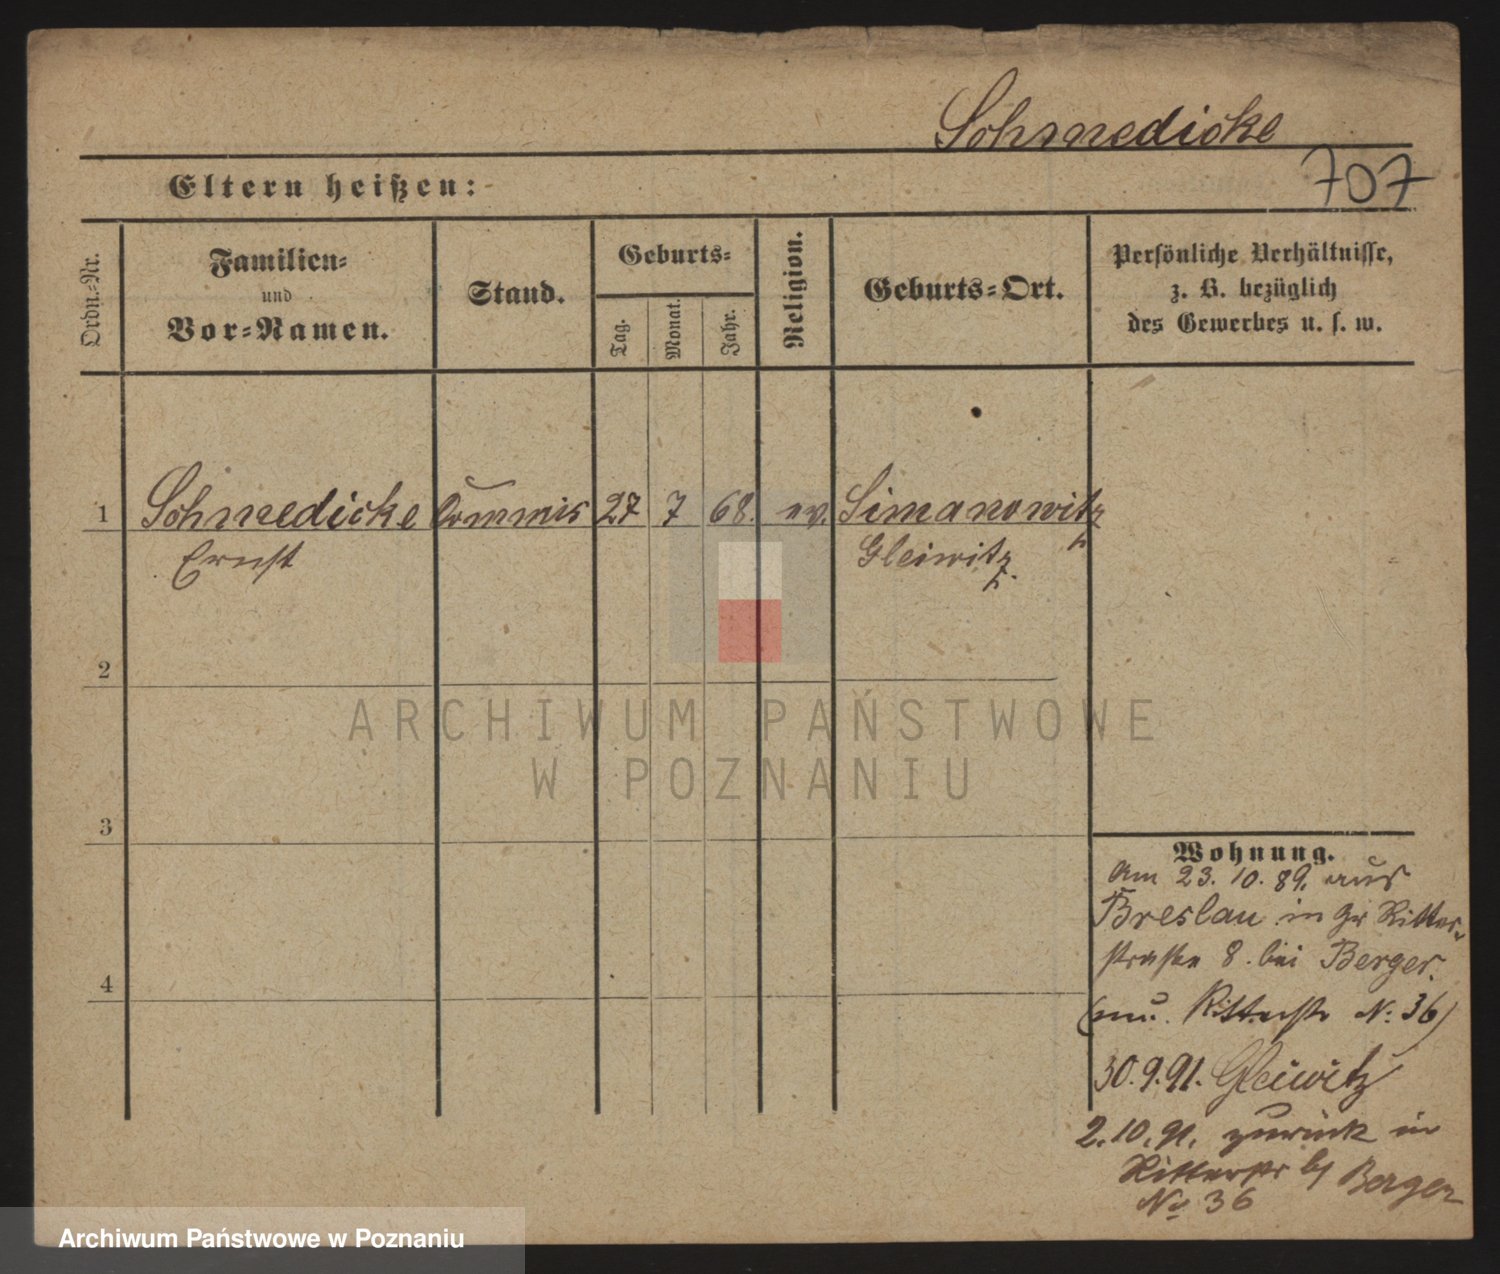 Schmedicke
707
Eltern heißen:
Ordn.-Nr.
Familien-
und
Vor-Namen.
Stand.
Geburts-
Tag.
Monat.
Jahr.
Religion.
Geburts-Ort.
Persönliche Verhältnisse,
z. B. bezüglich
des Gewerbes u. s. w.
1 Schmedicke Commis 27 7 68. ev. Simanowitz
Ernst Gleiwitz.
2
3
4
Wohnung.
Am 23.10.89. aus
Breslau in Gr Ritter-
straße 8. bei Berger.
Ritterstr N: 36)
30.9.91. Gleiwitz
2.10.91. zurück in
Ritterstr b/ Berger
No 36
ARCHIWUM PAŃSTWOWE
W POZNANIU
Archiwum Państwowe w Poznaniu